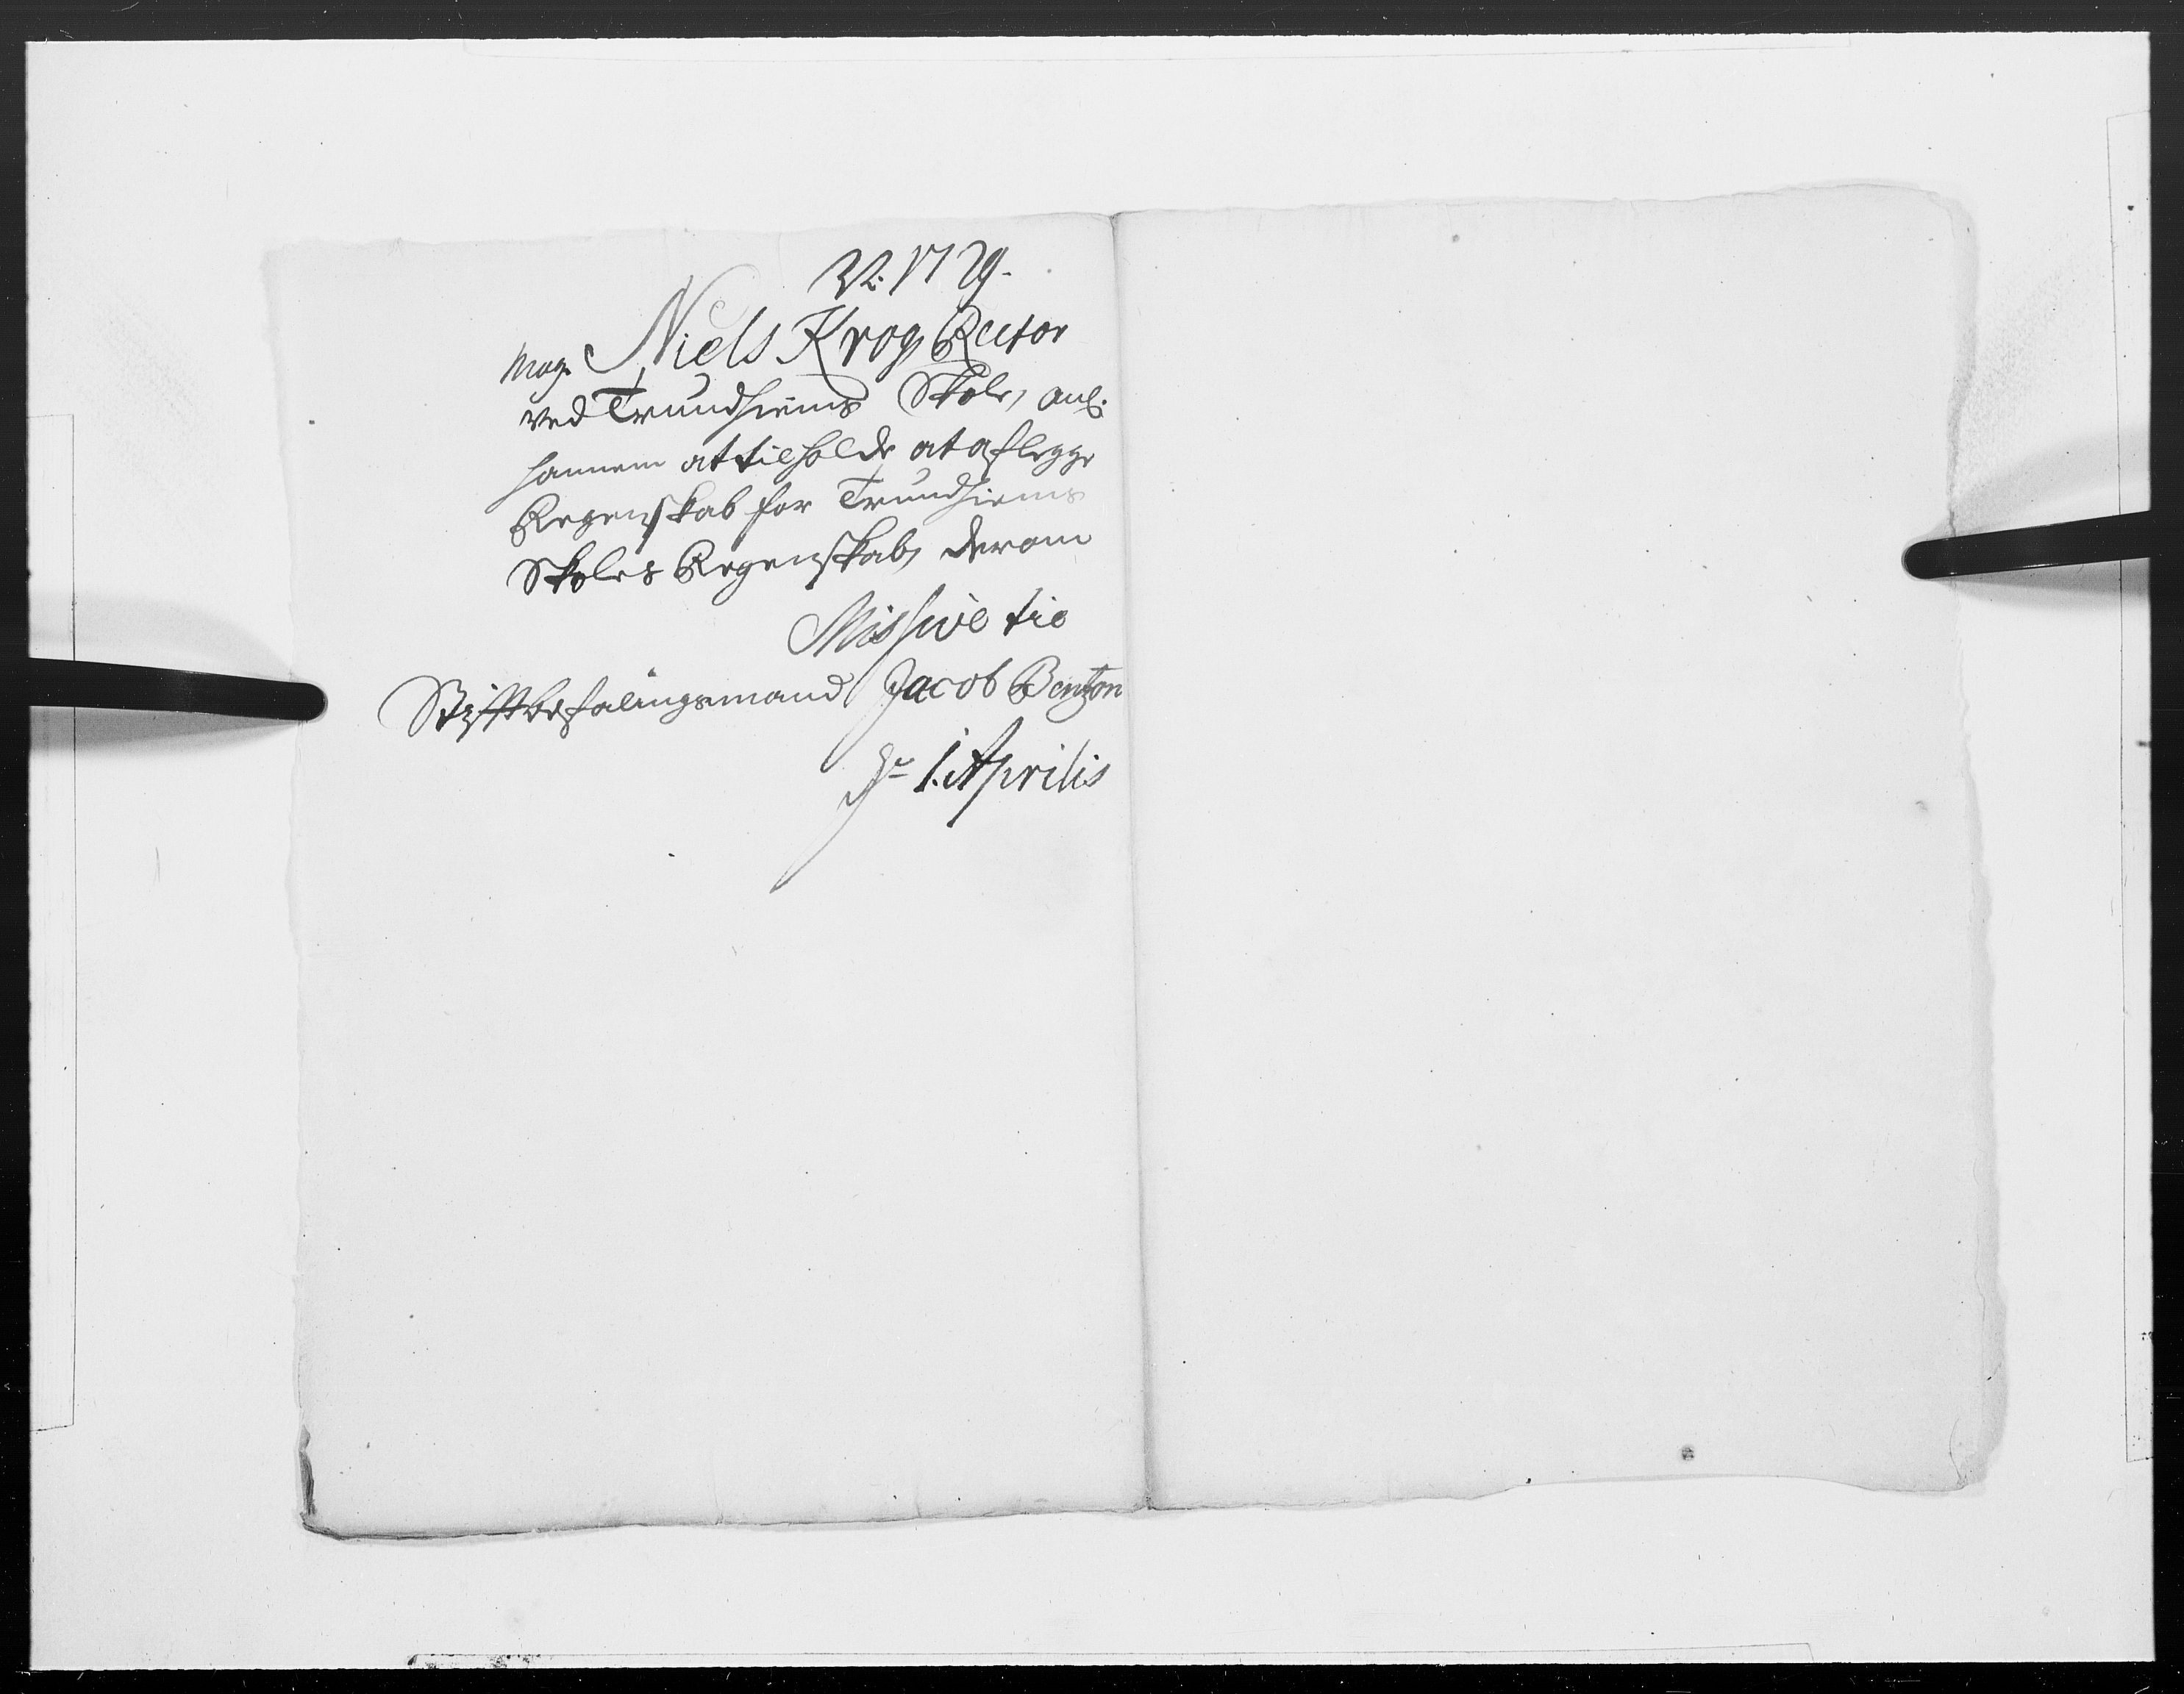 N: 1729.
Mag. Niels Krog, Rector
ved Trundhiems Skole, anl:
hannem at tilholde, at aflegge
Regenskab for Trundhiems
Skoles Regenskab, derom
Missive til
Stifftbefalingsmand Jacob Benzon
1. Aprilis